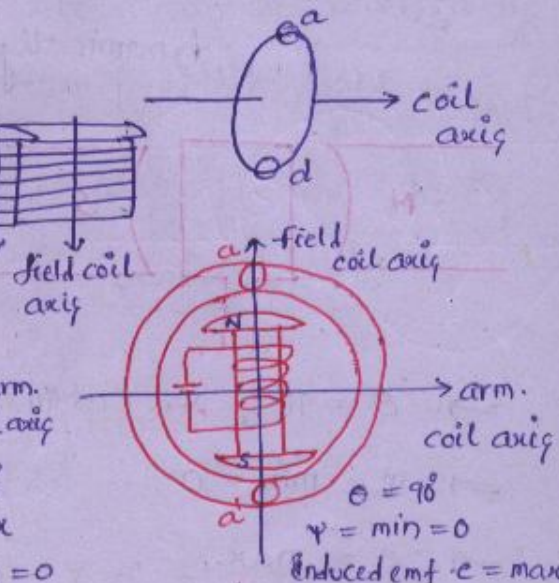 a
coil
axis
d
field coil
axis
a
field
coil axis
N
arm.
axis
arm.
coil axis
S
a'
θ = 90°
Ψ = min = 0
= 0
Induced emf e = max